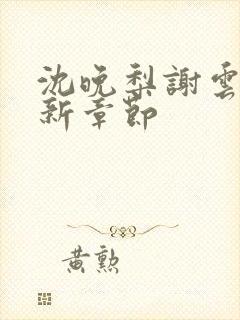 沈晚梨謝雲
新章節
黃勲